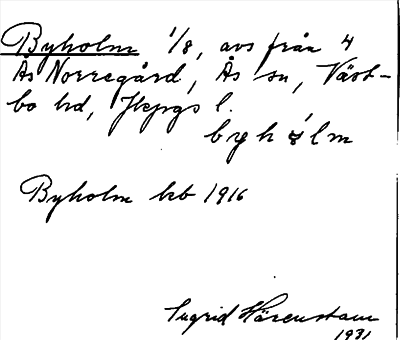 Byholm 1/8, avs från 4
Ås Norregård, Ås sn, Väst-
bo hd, Jkpgs l.
byhålm
Byholm kb 1916
Ingrid Härenstam
1931